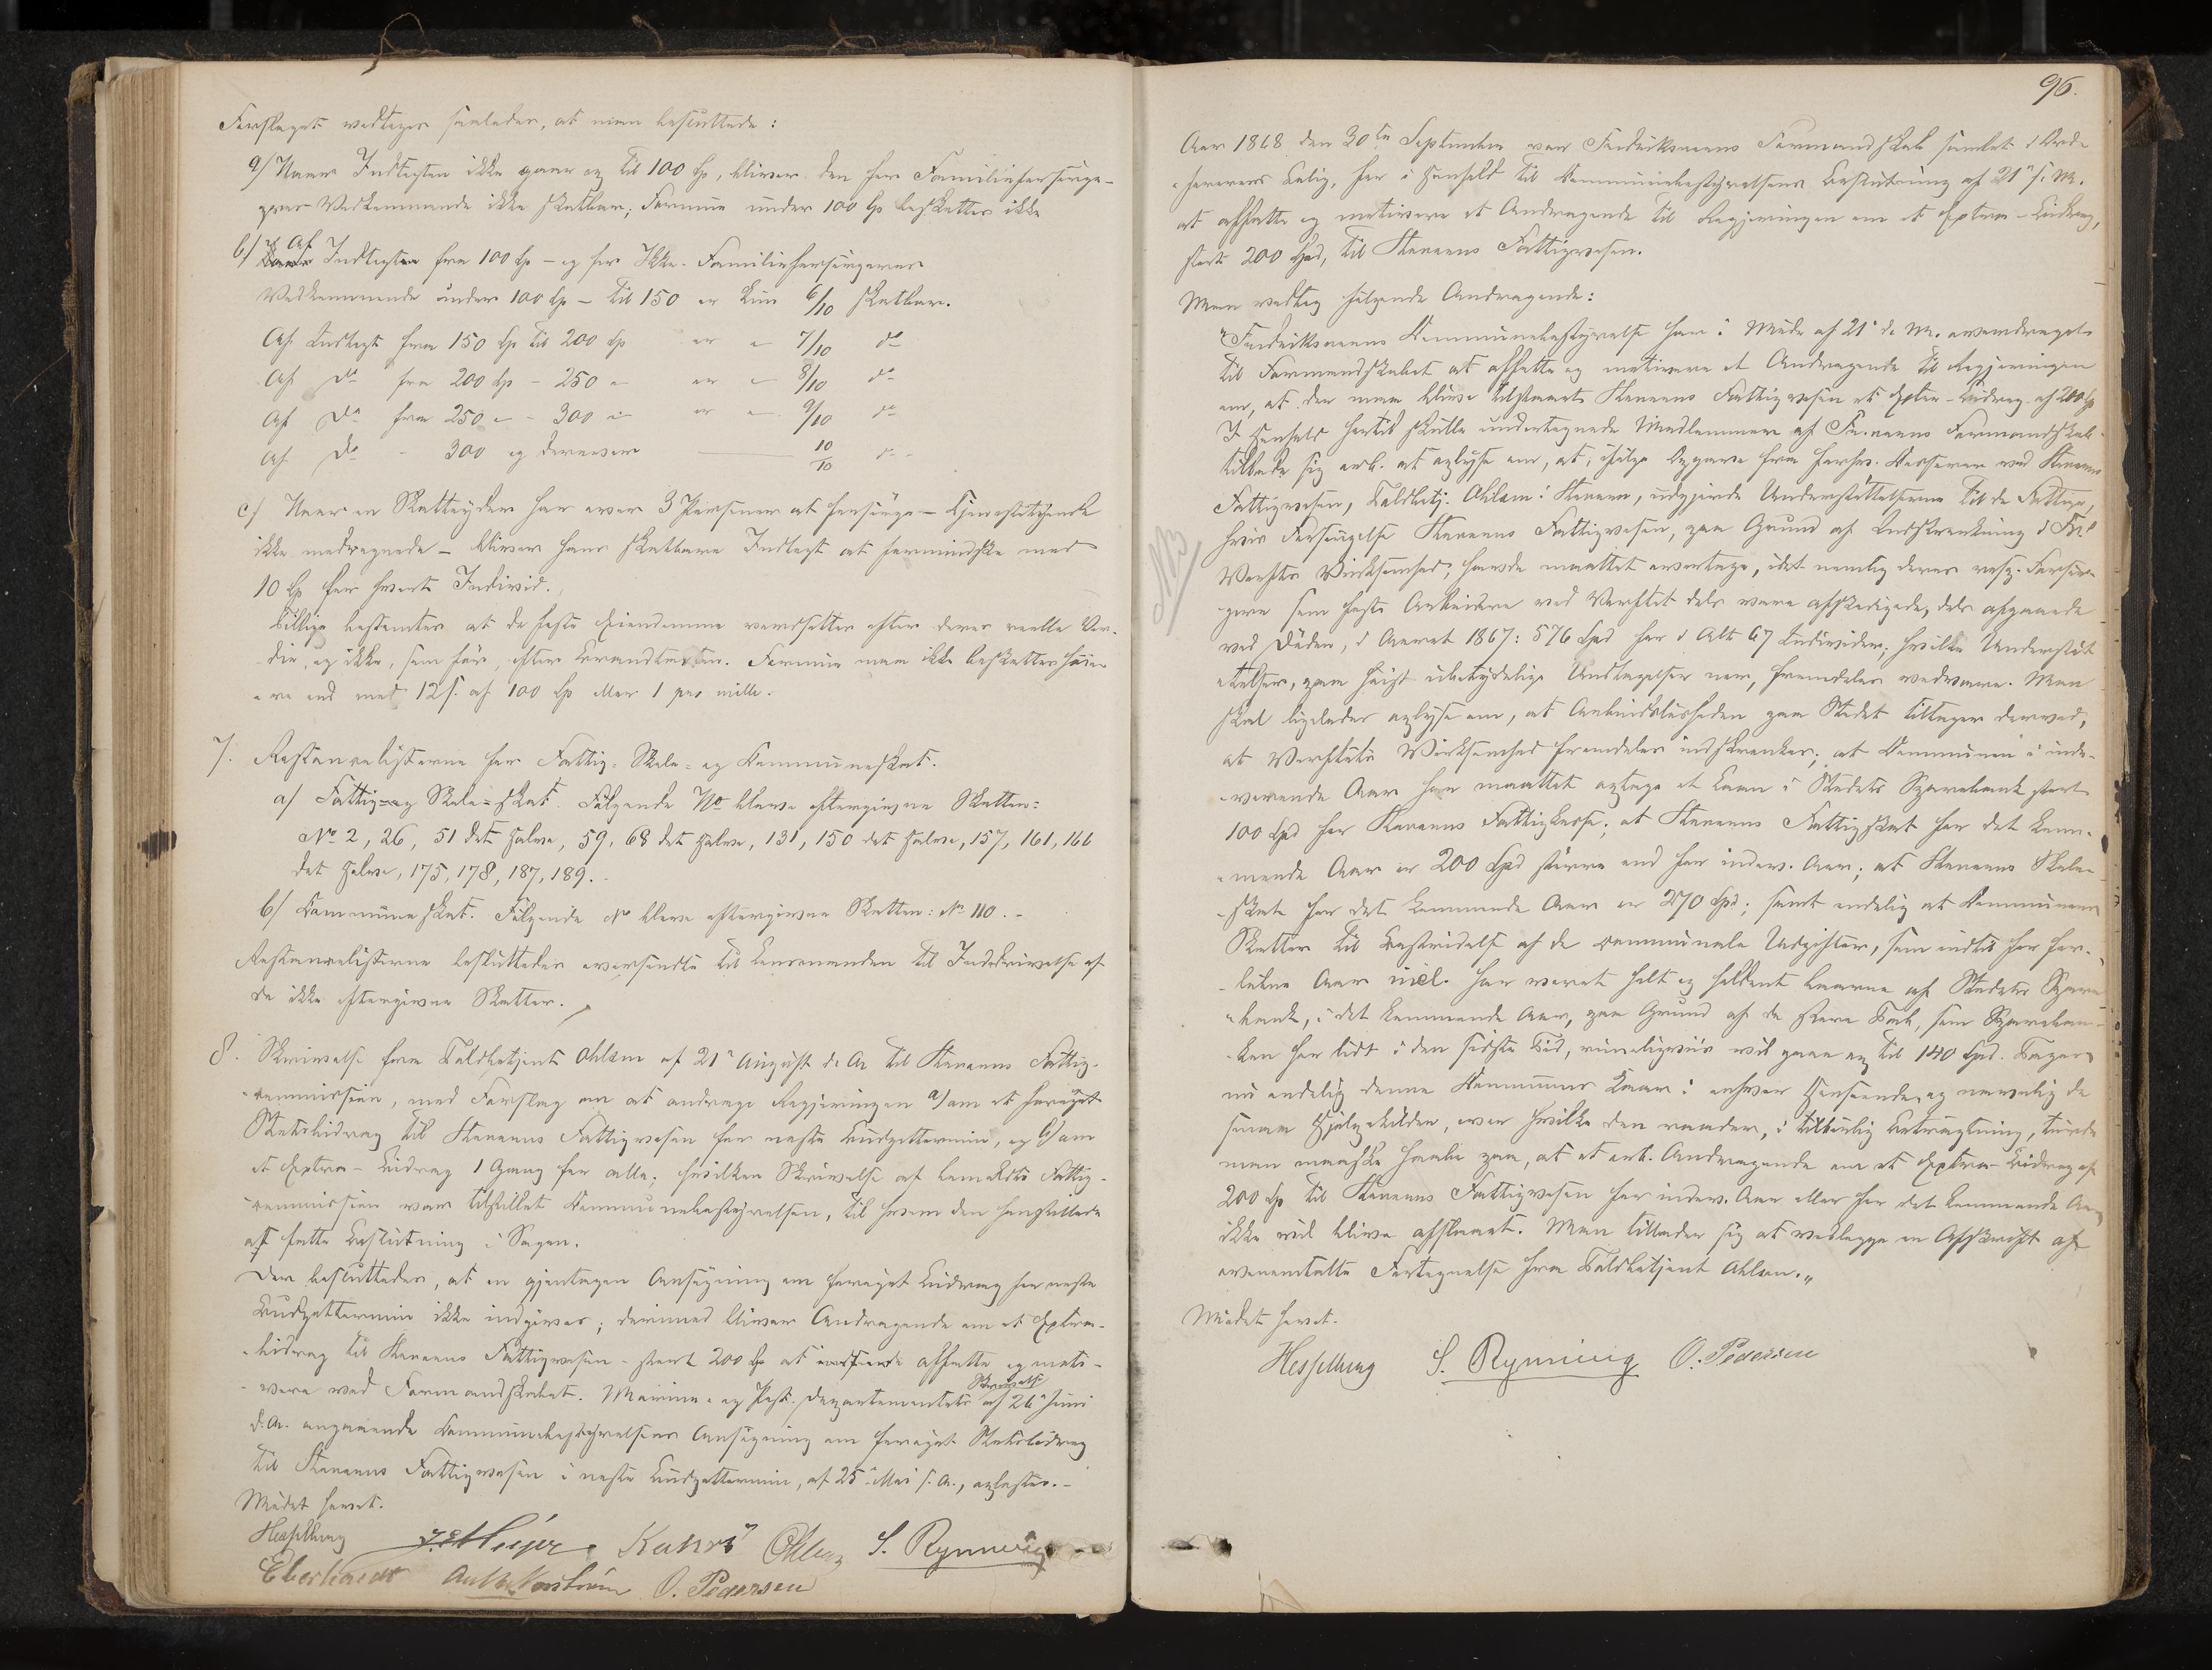 Forslaget vedtoges saaledes, at man besluttede:
a/ Naar Indtægten ikke gaaer op til 100 Sp, bliver den for Familieforsørge-
gres Vedkommende ikke skatbar; Formue under 100 Sp beskattes ikke
b/ Af Indtægten fra 100 Sp – og for Ikke-Familieforsørgeres
Vedkommende under 100 Sp – til 150 er kun 6/10 skatbar.
Af Indtægt fra 150 Sp til 200 Sp er – 7/10 do
Af do fra 200 Sp – 250 – er – 8/10 do
Af do fra 250 – – 300 – er – 9/10 do
Af do – 300 og derover – 10/10 do
c/ Naar en Skatteyder har over 3 Personer at forsørge – Tjenestetyende
ikke medregnede – bliver hans skatbare Indtægt at formindske med
10 Sp for hvert Individ.
Tillige bestemtes at de faste Eiendomme værdsættes efter deres reelle Vær-
die, og ikke, som før, efter Brandtaxten. Formue maa ikke beskattes høie-
re end med 12 s. af 100 Sp eller 1 pro mille.
7. Restancelisterne for Fattig- Skole- og Kommuneskat.
a/ Fattig- og Skole-skat. Følgende No bleve eftergivne Skatten:
No 2, 26, 51 det Halve, 59, 68 det Halve, 131, 150 det Halve, 157, 161, 166
det Halve, 175, 178, 187, 189.
b/ Communeskat. Følgende No bleve eftergivne Skatten: No 110. –
Restancelisterne besluttedes oversendte til Lensmanden til Inddrivelse af
de ikke eftergivne Skatter.
8. Skrivelse fra Toldbetjent Ohlsen af 21de August d. A. til Havnens Fattig-
commission, med Forslag om at andrage Regjeringen a) om et forøget
Statsbidrag til Havnens Fattigvæsen for næste Budgettermin, og b) om
et Extra-Bidrag 1 Gang for alle; hvilken Skrivelse af bemeldte Fattig-
commission var tilstillet Kommunebestyrelsen, til hvem den henstillede
at fatte Beslutning i Sagen.
Der besluttedes, at en gjentagen Ansøgning om forøget Bidrag for næste
Budgettermin ikke indgives; derimod bliver Andragende om et Extra-
bidrag til Havnens Fattigvæsen – stort 200 Sp at affatte og moti-
vere ved Formandskabet. Marine- og Post-Departementets Skrivelse af 26de Juni
d. A. angaaende Kommunebestyrelsens Ansøgning om forøget Statsbidrag
til Havnens Fattigvæsen i næste Budgettermin, af 25de Mai s. A., oplæstes. –
Mødet hævet.
Hesselberg Ohlsen S. Rynning
Eberhardt O. Pedersen
96.
Aar 1868 den 30te September var Fredriksværns Formandskab samlet i Ord-
førerens Bolig, for i Henhold til Kommunebestyrelsens Beslutning af 21de s. M.
at affatte og motivere et Andragende til Regjeringen om et Extra-Bidrag,
stort 200 Spd, til Havnens Fattigvæsen.
Man vedtog følgende Andragende:
"Fredriksværns Kommunebestyrelse har i Møde af 21de d. M. overdraget
til Formandskabet at affatte og motivere et Andragende til Regjeringen
om, at der maa blive tilstaaet Havnens Fattigvæsen et Extra-Bidrag af 200 Sp
I Henhold hertil skulle undertegnede Medlemmer af Fr.værns Formandskab
tillade sig ærb. at oplyse om, at, ifølge Opgave fra Kasserer ved Havnens
Fattigvæsen, Toldbetj. Ohlsen i Havnen, udgjorde Understøttelserne til de Fattige,
hvis Forsørgelse Havnens Fattigvæsen, paa Grund af Indskrænkning i Fr.v.
Værfts Virksomhed, havde maattet overtage, idet nemlig deres resp. Forsør-
gere som faste Arbeidere ved Værftet dels vare afskedigede, dels afgaaede
ved Døden, i Aaret 1867: 576 Spd for i Alt 67 Individer; hvilke Understøt-
telser, paa høist ubetydelige Undtagelser nær, fremdeles vedvare. Man
skal ligeledes oplyse om, at Arbeidsløsheden paa Stedet tiltager derved,
at Værftets Virksomhed fremdeles indskrænkes; at Kommunen i inde-
værende Aar har maattet optage et Laan i Stedets Sparebank stort
100 Spd for Havnens Fattigkasse; at Havnens Fattigskat for det kom-
mende Aar er 200 Spd større end for indev. Aar; at Havnens Skole-
skat for det kommende Aar er 270 Spd; samt endelig at Kommunens
Skatter til Bestridelse af de communale Udgifter, som indtil for for-
løbne Aar incl. har været helt og holdent baarne af Stedets Spare-
bank, i det kommende Aar, paa Grund af de store Tab, som Spareban-
ken har lidt i den sidste Tid, rimeligviis vil gaae op til 140 Spd. Tages
nu endelig denne Kommunes Kaar i enhver Henseende, og navnlig de
smaa Hjælpekilder, over hvilke den raader, i tilbørlig Betragtning, turde
man maaske haabe paa, at et ærb. Andragende om et Extra-Bidrag af
200 Sp til Havnens Fattigvæsen for indev. Aar eller for det kommende Aar
ikke vil blive afslaaet. Man tillader sig at vedlægge en Afskrift af
ovenomtalte Fortegnelse fra Toldbetjent Ohlsen."
Mødet hævet.
Hesselberg S. Rynning O. Pedersen
NB